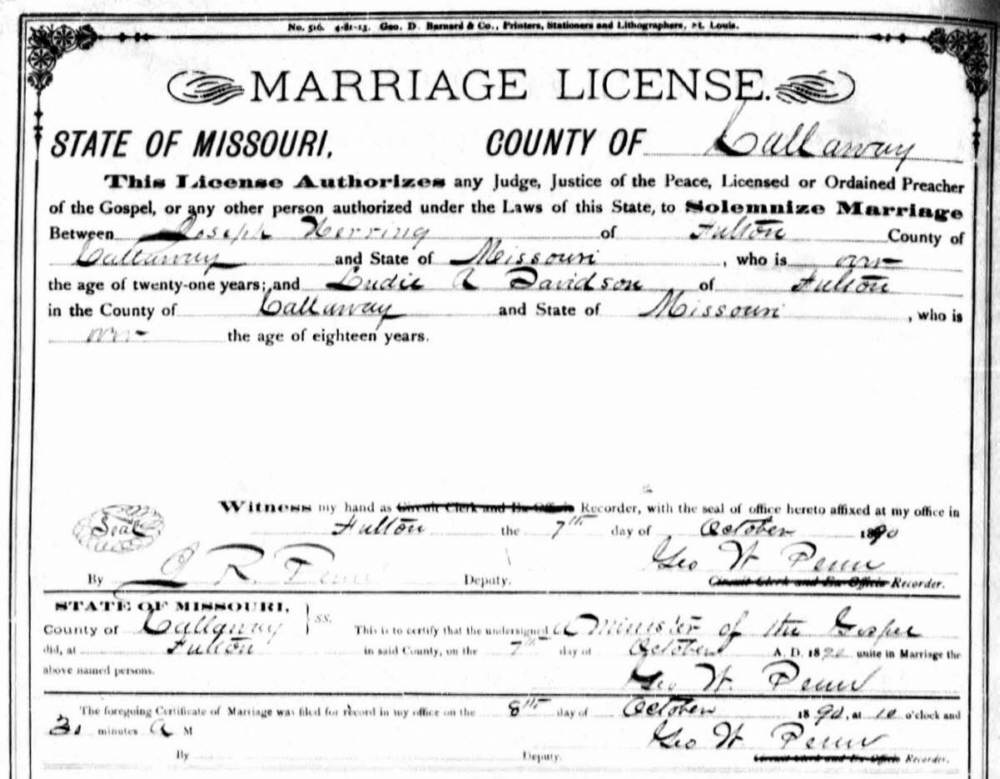 No. 516. 4-81-13. Geo. D. Barnard & Co., Printers, Stationers and Lithographers, St. Louis.
MARRIAGE LICENSE.
STATE OF MISSOURI, COUNTY OF Callaway
This License Authorizes any Judge, Justice of the Peace, Licensed or Ordained Preacher
of the Gospel, or any other person authorized under the Laws of this State, to Solemnize Marriage
Between Joseph Herring of Fulton County of
Callaway and State of Missouri, who is over
the age of twenty-one years; and Ludie A Davidson of Fulton
in the County of Callaway and State of Missouri, who is
over the age of eighteen years.
Witness my hand as Circuit Clerk and Ex-Officio Recorder, with the seal of office hereto affixed at my office in
Seal
Fulton the 7th day of October 1890
Geo W Penn
By R. Penn Deputy. Circuit Clerk and Ex-Officio Recorder.
STATE OF MISSOURI,
County of Callaway ss. This is to certify that the undersigned a Minister of the Gospel
did, at Fulton in said County, on the 7th day of October A. D. 1890 unite in Marriage the
above named persons. Geo W. Penn
The foregoing Certificate of Marriage was filed for record in my office on the 8th day of October 1890, at 10 o'clock and
30 minutes A M Geo W Penn
By Deputy. Circuit Clerk and Ex-Officio Recorder.